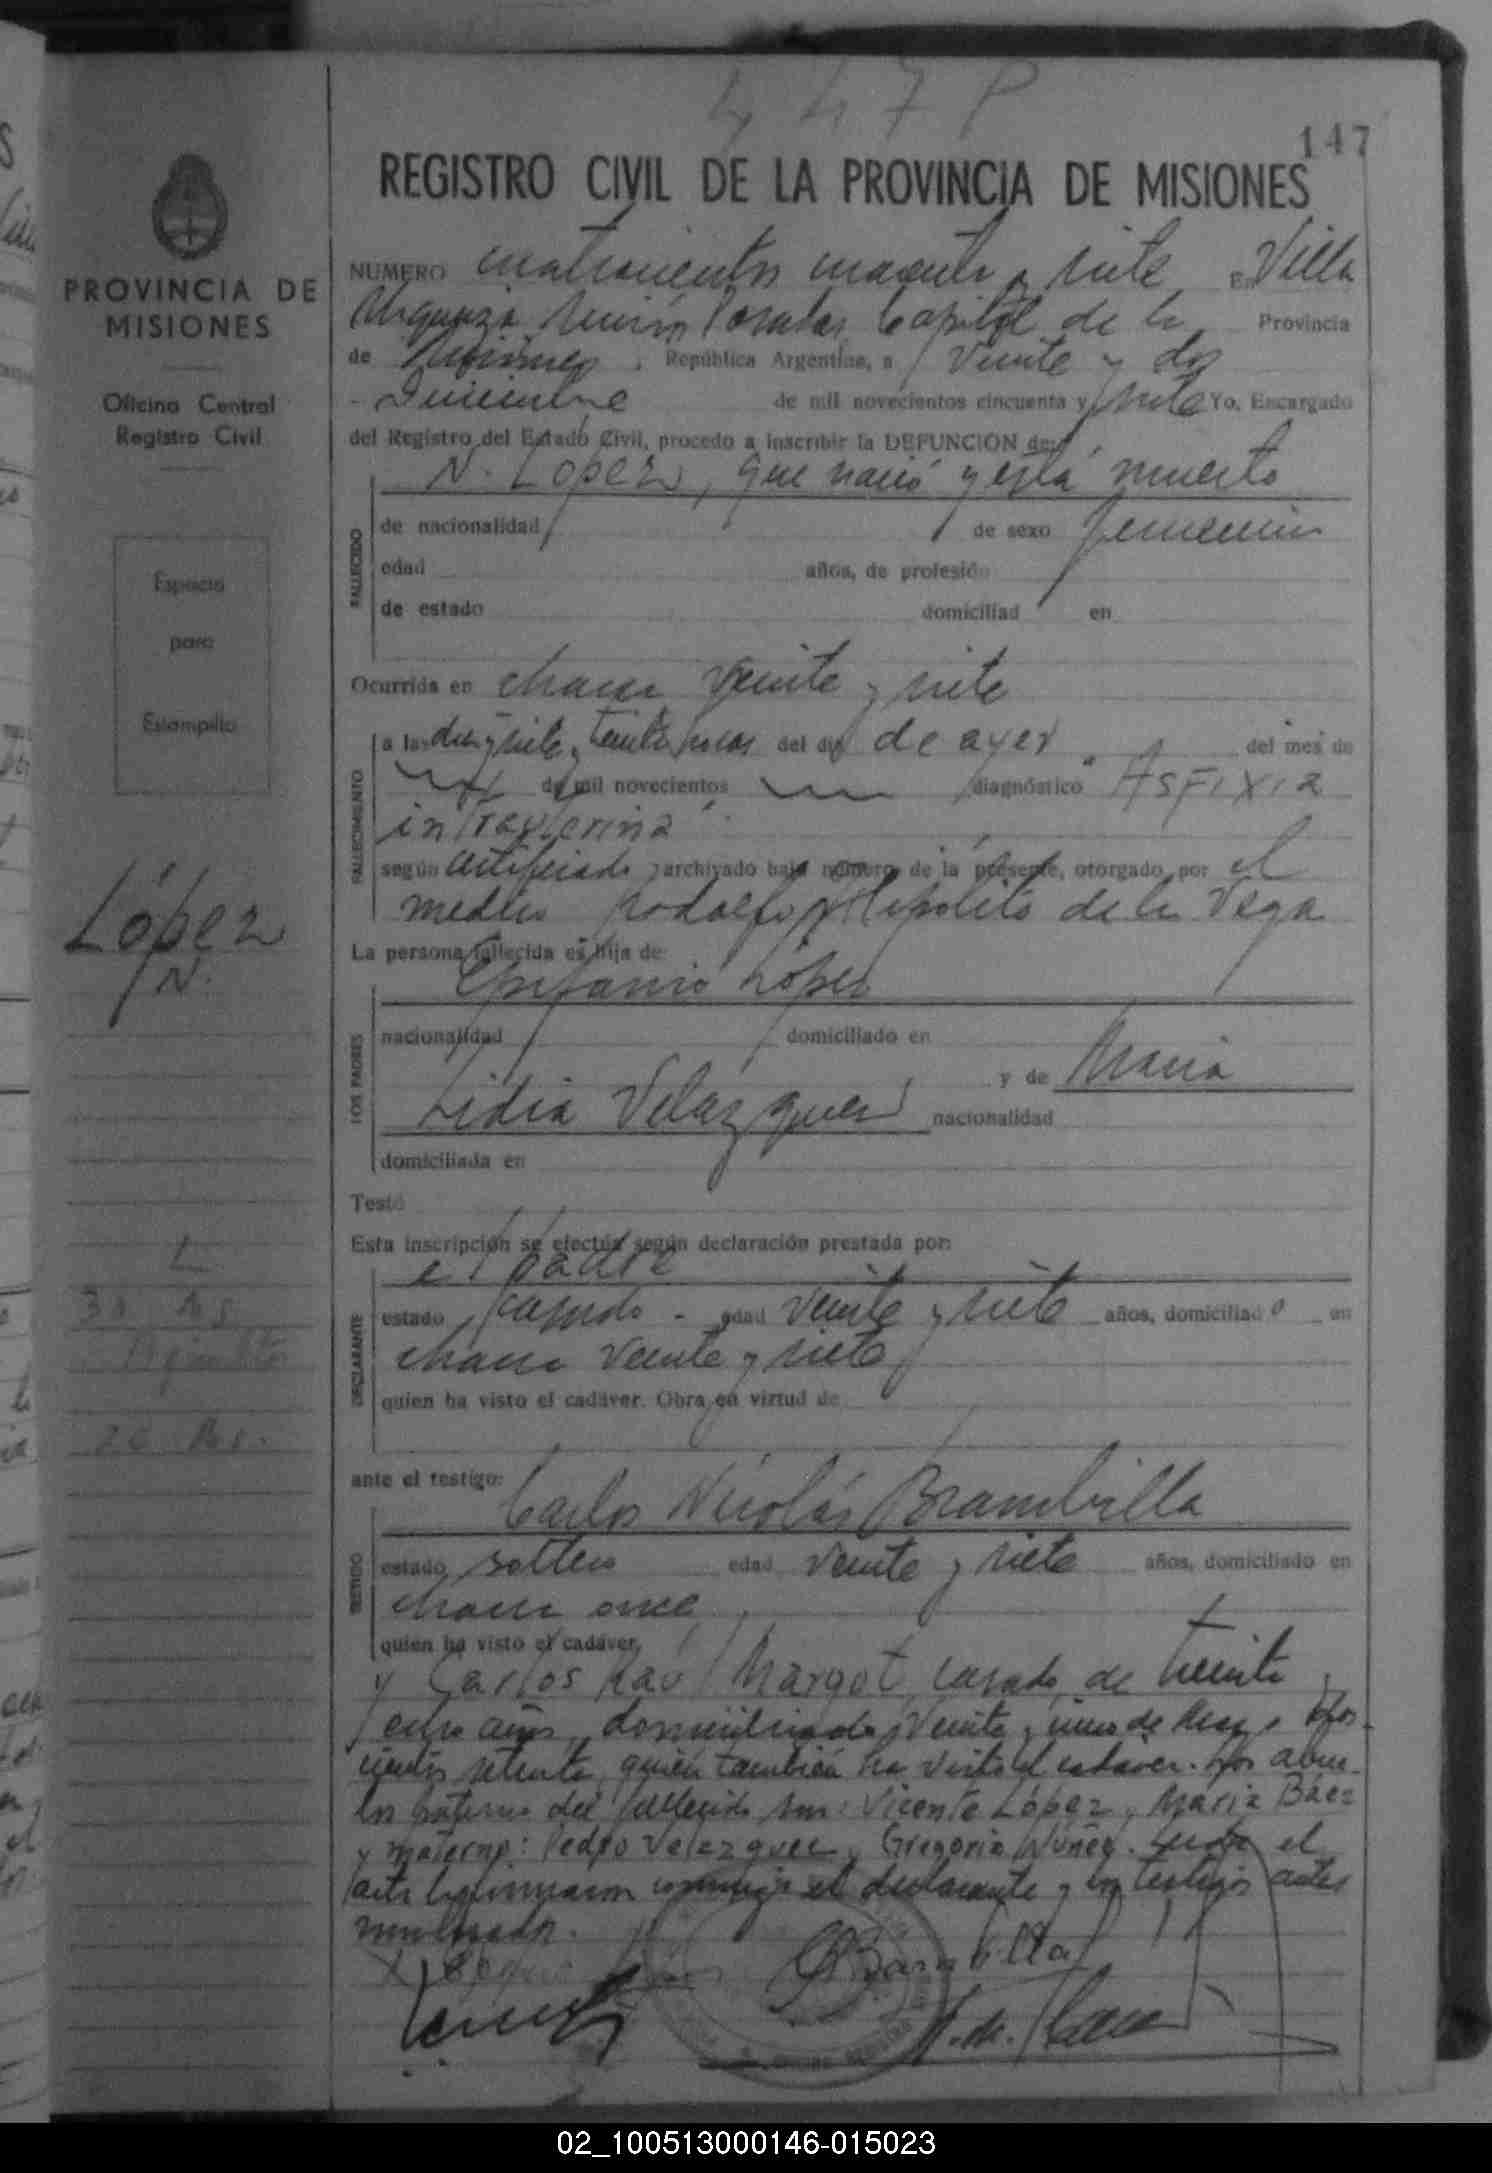 447 P
147
REGISTRO CIVIL DE LA PROVINCIA DE MISIONES
PROVINCIA DE
MISIONES
Oficina Central
Registro Civil
Espacio
para
Estampilla
López
N.
L
NUMERO cuatrocientos cuarenta y siete En Villa
Urquiza, Posadas Capital de la Provincia
de Misiones, República Argentina, a Veinte y dos
Diciembre de mil novecientos cincuenta y siete Yo, Encargado
del Registro del Estado Civil, procedo a inscribir la DEFUNCION de:
N. López, que nació y está muerto
FALLECIDO
de nacionalidad de sexo femenino
edad años, de profesión
de estado domiciliad en
Ocurrida en chacra veinte y siete
FALLECIMIENTO
a las diez y siete y treinta horas del día de ayer del mes de
de mil novecientos diagnóstico Asfixia
intrauterina
según certificado archivado bajo número de la presente, otorgado por el
médico Rodolfo Hipólito de la Vega
La persona fallecida es hija de:
Epifanio López
LOS PADRES
nacionalidad domiciliado en
y de María
Lidia Velazquez nacionalidad
domiciliada en
Testó
Esta inscripción se efectúa según declaración prestada por:
el padre
DECLARANTE
estado casado - edad veinte y siete años, domiciliado en
chacra veinte y siete
quien ha visto el cadáver. Obra en virtud de
ante el testigo:
Carlos Nicolás Brambilla
TESTIGO
estado soltero edad veinte y siete años, domiciliado en
chacra once
quien ha visto el cadáver,
y Carlos Raúl Margot, casado, de treinta y
ocho años, domiciliado Veinte y cinco de Mayo
cientos setenta, quien también ha visto el cadáver. Los abue-
los paternos del fallecido son: Vicente López y María Báez
y materno: Pedro Velazquez y Gregoria Núñez. el
acta la firmaron conmigo el declarante y los testigos antes
nombrados.
CNBrambilla
02_100513000146-015023